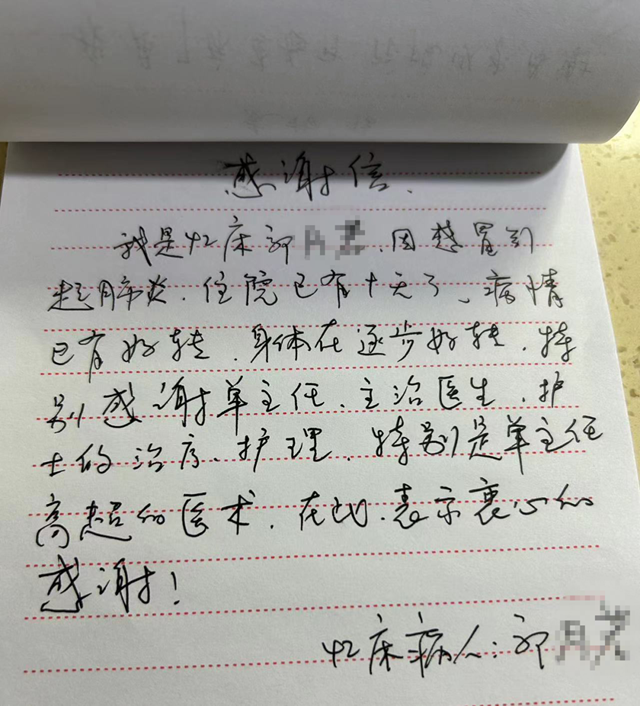 感谢信.
我是42床郭 因感冒引
起肺炎.住院已有十天了、病情
已有好转、身体在逐步好转、特
别感谢单主任、主治医生、护
士的治疗、护理、特别是单主任
高超的医术、在此、表示衷心的
感谢!
42床病人:郭